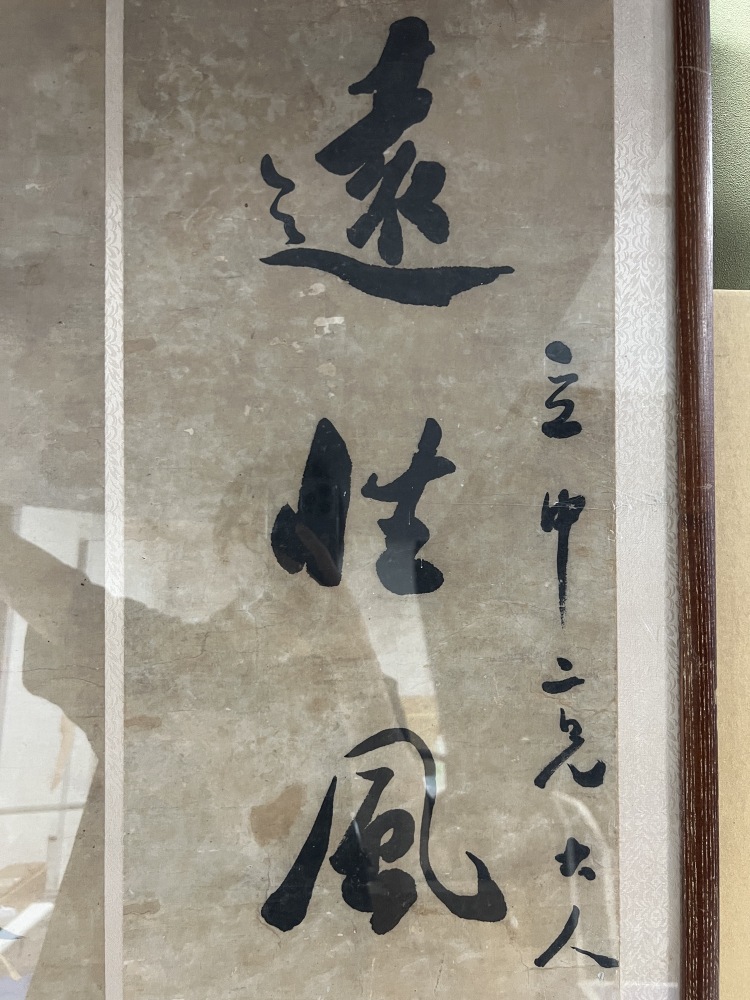 立中二兄大人
遠性風